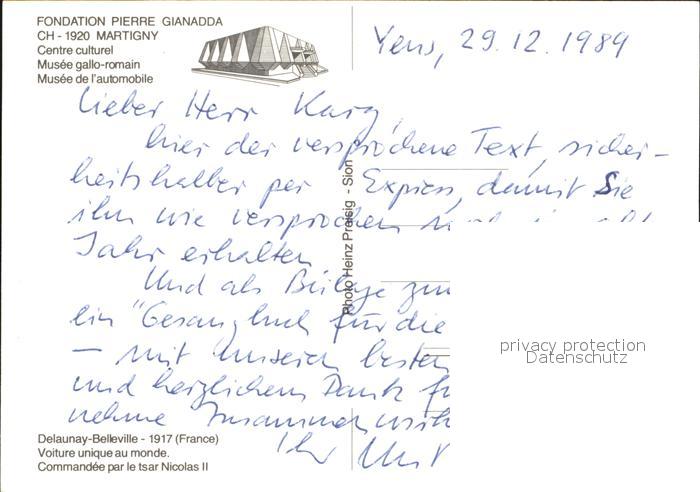 FONDATION PIERRE GIANADDA
CH - 1920 MARTIGNY
Centre culturel
Musée gallo-romain
Musée de l'automobile
Yens, 29.12.1989
Lieber Herr Karg,
hier der versprochene Text, sicher-
heitshalber per Express, damit Sie
ihn wie versprochen
Jahr erhalten.
Und als Beilage zum
ein "Gesangbuch für die
– mit unseren besten
und herzlichem Dank
nehme Zusammen
Ihr
Photo Heinz Preisig - Sion
privacy protection
Datenschutz
Delaunay-Belleville - 1917 (France)
Voiture unique au monde.
Commandée par le tsar Nicolas II